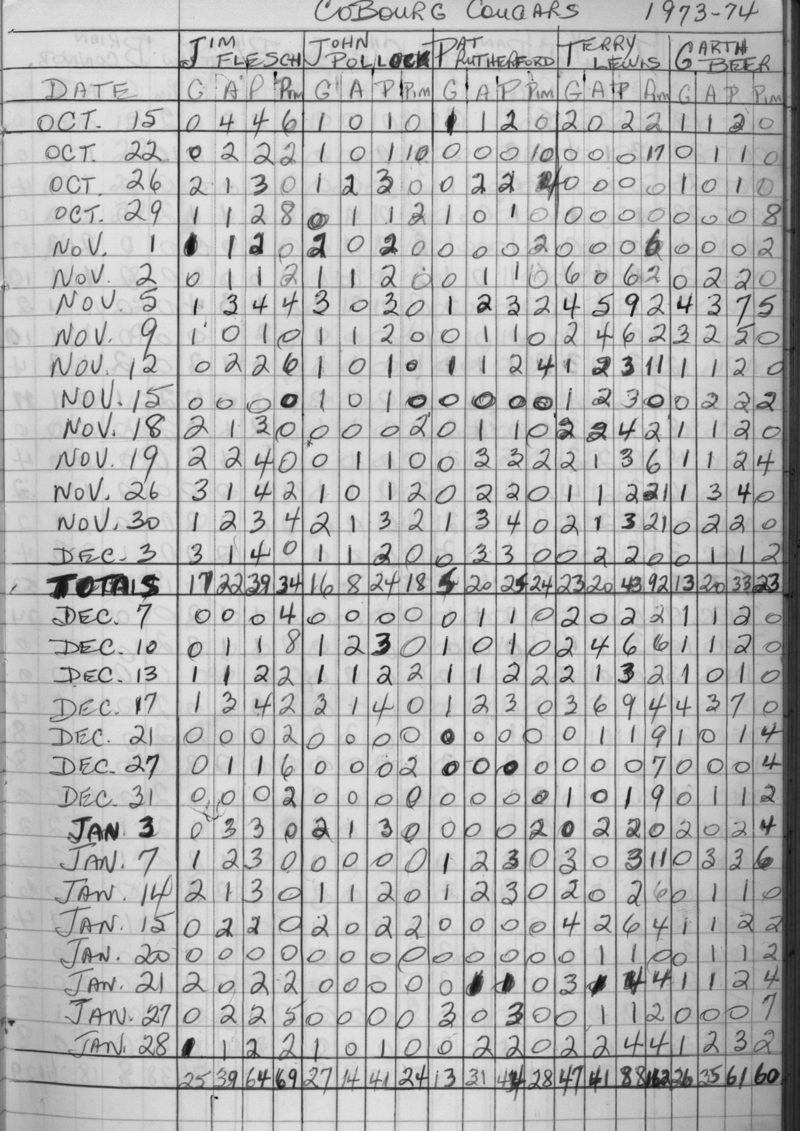 COBOURG COUGARS 1973-74
JIM FLESCH JOHN POLLOCK PAT RUTHERFORD TERRY LEWIS GARTH BEER
DATE G A P Pim G A P Pim G A P Pim G A P Pim G A P Pim
OCT. 15 0 4 4 6 1 0 1 0 1 1 2 0 2 0 2 2 1 1 2 0
OCT. 22 0 2 2 2 1 0 1 10 0 0 0 10 0 0 0 17 0 1 1 0
OCT. 26 2 1 3 0 1 2 3 0 0 2 2 4 0 0 0 0 1 0 1 0
OCT. 29 1 1 2 8 0 1 1 2 1 0 1 0 0 0 0 0 0 0 0 8
NOV. 1 1 1 2 0 2 0 2 0 0 0 0 2 0 0 0 6 0 0 0 2
NOV. 2 0 1 1 2 1 1 2 0 0 1 1 0 6 0 6 2 0 2 2 0
NOV. 5 1 3 4 4 3 0 3 0 1 2 3 2 4 5 9 2 4 3 7 5
NOV. 9 1 0 1 0 1 1 2 0 0 1 1 0 2 4 6 2 3 2 5 0
NOV. 12 0 2 2 6 1 0 1 0 1 1 2 4 1 2 3 11 1 1 2 0
NOV. 15 0 0 0 0 1 0 1 0 0 0 0 0 1 2 3 0 0 2 2 2
NOV. 18 2 1 3 0 0 0 0 2 0 1 1 0 2 2 4 2 1 1 2 0
NOV. 19 2 2 4 0 0 1 1 0 0 3 3 2 2 1 3 6 1 1 2 4
NOV. 26 3 1 4 2 1 0 1 2 0 2 2 0 1 1 2 21 1 3 4 0
NOV. 30 1 2 3 4 2 1 3 2 1 3 4 0 2 1 3 21 0 2 2 0
DEC. 3 3 1 4 0 1 1 2 0 0 3 3 0 0 2 2 0 0 1 1 2
TOTALS 17 22 39 34 16 8 24 18 5 20 25 24 23 20 43 92 13 20 33 23
DEC. 7 0 0 0 4 0 0 0 0 0 1 1 0 2 0 2 2 1 1 2 0
DEC. 10 0 1 1 8 1 2 3 0 1 0 1 0 2 4 6 6 1 1 2 0
DEC. 13 1 1 2 2 1 1 2 2 1 1 2 2 2 1 3 2 1 0 1 0
DEC. 17 1 3 4 2 3 1 4 0 1 2 3 0 3 6 9 4 4 3 7 0
DEC. 21 0 0 0 2 0 0 0 0 0 0 0 0 0 1 1 9 1 0 1 4
DEC. 27 0 1 1 6 0 0 0 2 0 0 0 0 0 0 0 7 0 0 0 4
DEC. 31 0 0 0 2 0 0 0 0 0 0 0 0 1 0 1 9 0 1 1 2
JAN. 3 0 3 3 0 2 1 3 0 0 0 0 2 0 2 2 0 2 0 2 4
JAN. 7 1 2 3 0 0 0 0 0 1 2 3 0 3 0 3 11 0 3 3 6
JAN. 14 2 1 3 0 1 1 2 0 1 2 3 0 2 0 2 6 0 1 1 0
JAN. 15 0 2 2 0 2 0 2 2 0 0 0 0 4 2 6 4 1 1 2 2
JAN. 20 0 0 0 0 0 0 0 0 0 0 0 0 0 1 1 0 0 1 1 2
JAN. 21 2 0 2 2 0 0 0 0 0 1 1 0 3 1 4 4 1 1 2 4
JAN. 27 0 2 2 5 0 0 0 0 3 0 3 0 0 1 1 2 0 0 0 7
JAN. 28 1 1 2 2 1 0 1 0 0 2 2 0 2 2 4 4 1 2 3 2
25 39 64 69 27 14 41 24 13 31 44 28 47 41 88 162 26 35 61 60